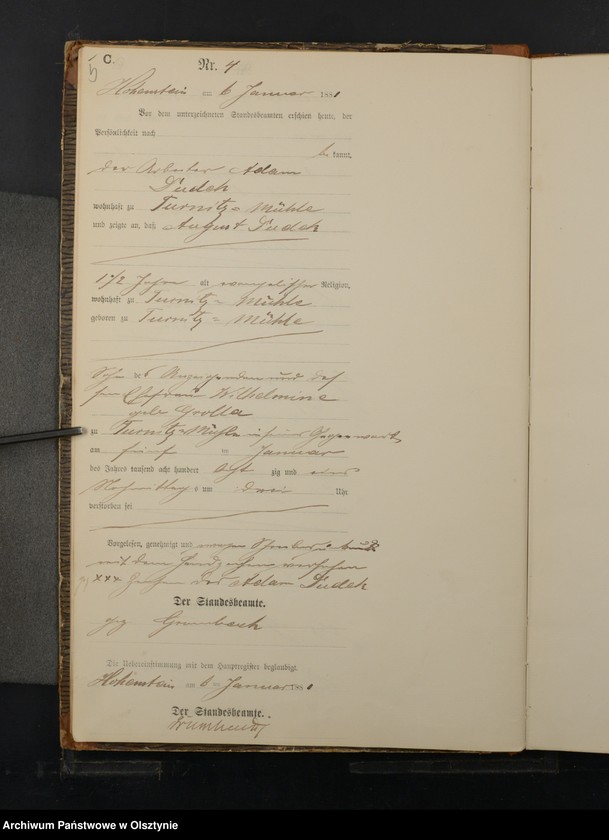 5
C.
Nr. 4
Hohenstein am 6 Januar 1881
Vor dem unterzeichneten Standesbeamten erschien heute, der
Persönlichkeit nach
be kannt,
der Arbeiter Adam
Dudek
wohnhaft zu Turnitz-Mühle
und zeigte an, daß August Dudek
1 1/2 Jahre alt evangelischer Religion,
wohnhaft zu Turnitz-Mühle
geboren zu Turnitz-Mühle
Sohn des Anzeigenden und des
sein Ehefrau Wilhelmine
geb Grolla
zu Turnitz-Mühle in seiner Gegenwart
am fünf ten Januar
des Jahres tausend acht hundert acht zig und eins
Nachmittags um drei Uhr
verstorben sei
Vorgelesen, genehmigt und wegen Schreibens
mit dem Handzeichen versehen
+++ Zeichen des Adam Dudek
Der Standesbeamte.
gez
Die Uebereinstimmung mit dem Hauptregister beglaubigt.
Hohenstein am 6 ten Januar 1881
Der Standesbeamte.
Archiwum Państwowe w Olsztynie